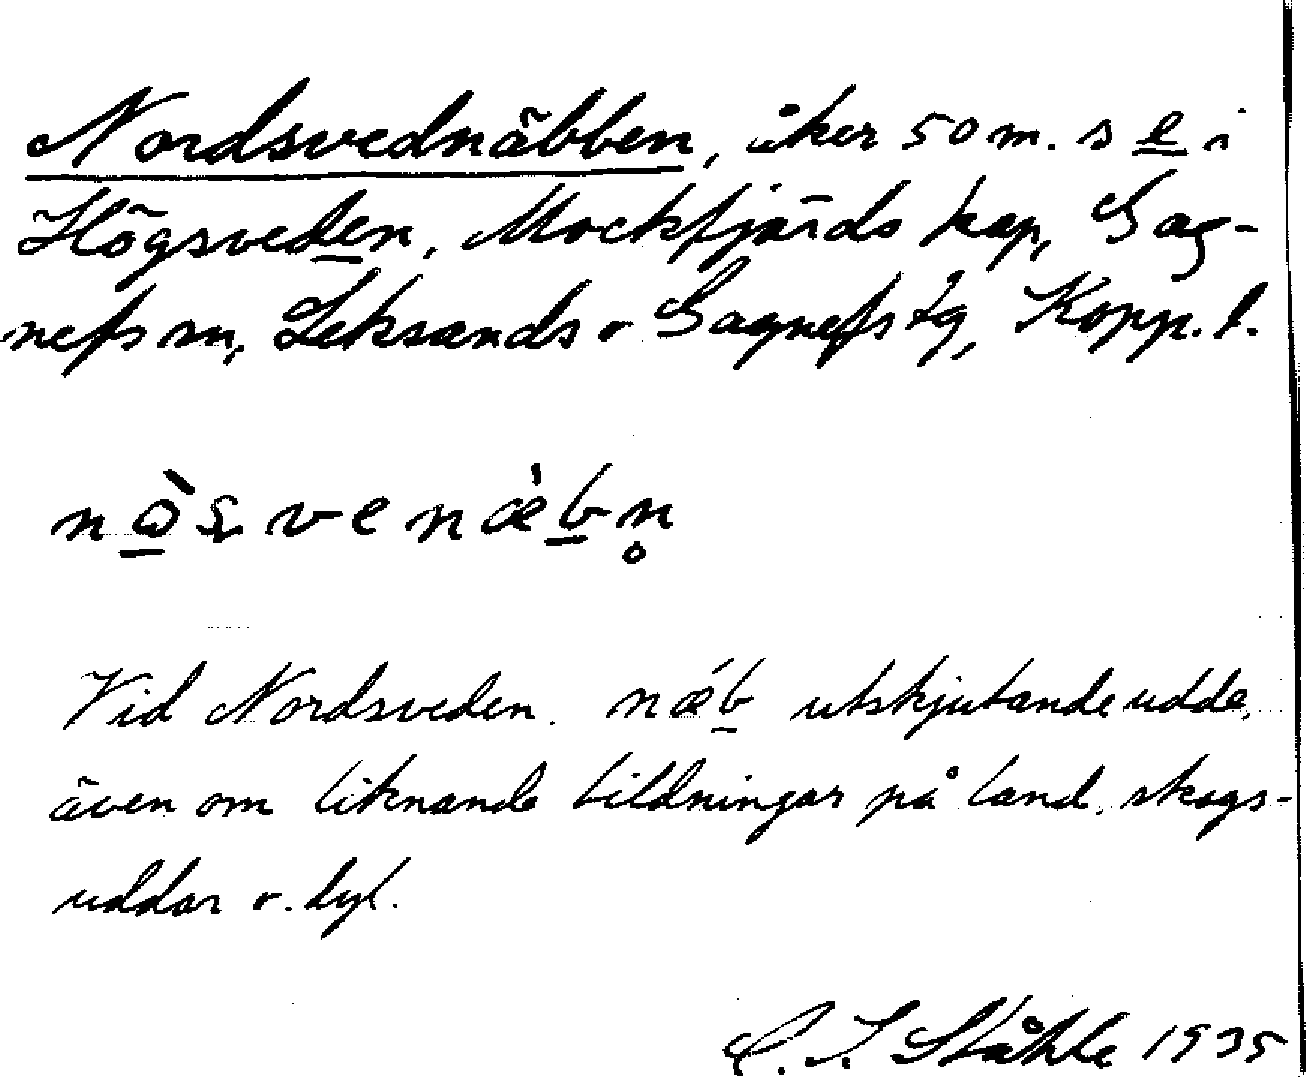 Nordsvednäbben, åker 50 m. s e i
Högsveden, Mockfjärds kap, Gag-
nefs sn, Leksands o Gagnefs tg, Kopp. l.
Vid Nordsveden. næb utskjutande udde,
även om liknande bildningar på land, skogs-
uddar o. dyl.
C. I. Ståhle 1935